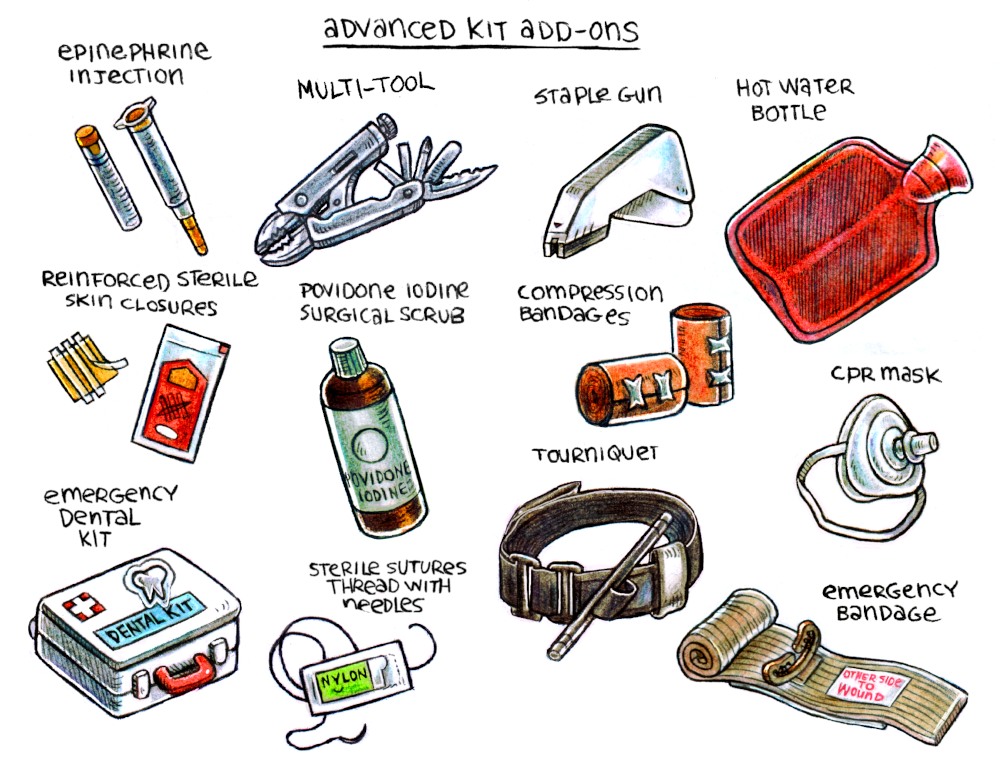 ADVANCED KIT ADD-ONS
EPINEPHRINE
INJECTION
MULTI-TOOL
STAPLE GUN
HOT WATER
BOTTLE
REINFORCED STERILE
SKIN CLOSURES
POVIDONE IODINE
SURGICAL SCRUB
POVIDONE
IODINE
COMPRESSION
BANDAGES
CPR MASK
EMERGENCY
DENTAL
KIT
DENTAL KIT
STERILE SUTURES
THREAD WITH
NEEDLES
NYLON
TOURNIQUET
EMERGENCY
BANDAGE
OTHER SIDE
TO
WOUND